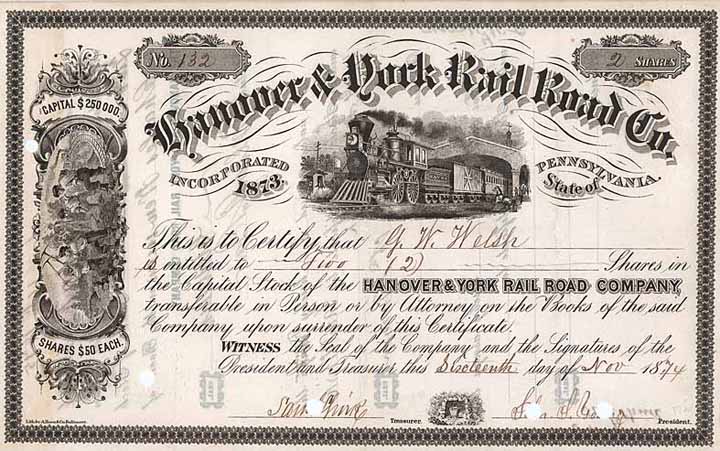 No. 132
2 SHARES
CAPITAL $250 000.
Hanover & York Rail Road Co.
INCORPORATED 1873.
State of PENNSYLVANIA.
This is to Certify that G. W. Welsh
is entitled to Two (2) Shares in
the Capital Stock of the HANOVER & YORK RAIL ROAD COMPANY,
transferable in Person or by Attorney on the Books of the said
Company upon surrender of this Certificate.
SHARES $50 EACH.
WITNESS the Seal of the Company and the Signatures of the
President and Treasurer this Sixteenth day of Nov 1874
Treasurer.
President.
Lith. by A. Hoen & Co. Baltimore.